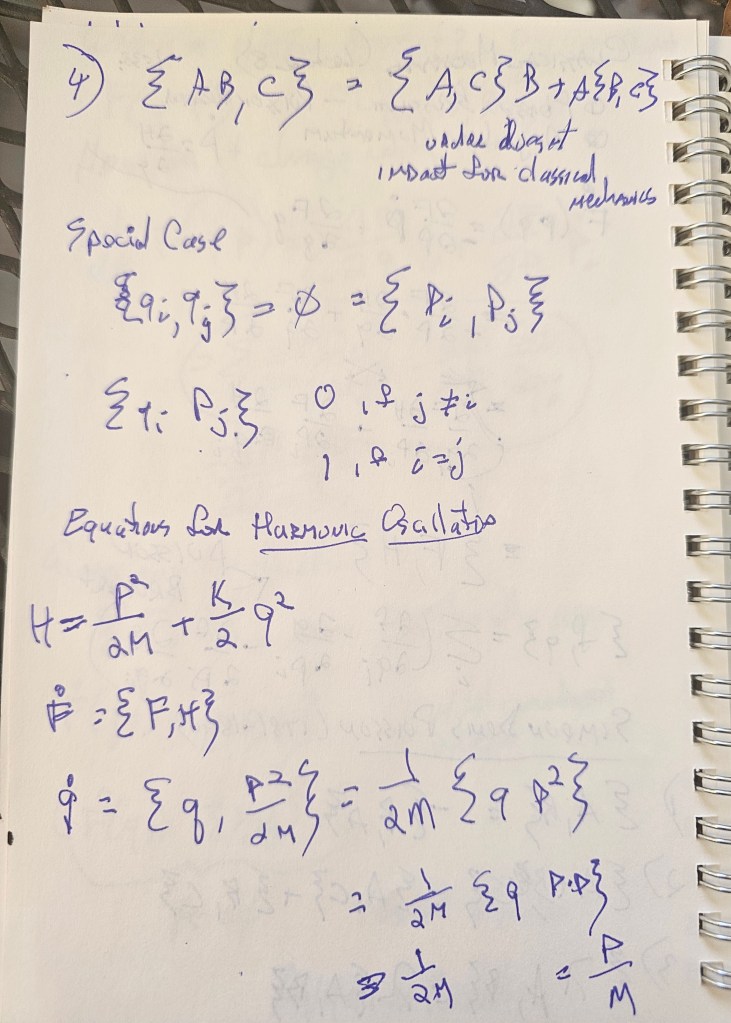 4) {AB, C} = {A, C}B + A{B, C}
order doesn't
impact for classical
mechanics
Special Case
{qi, qj} = ∅ = {Pi, Pj}
{qi Pj} 0 if j ≠ i
1 if i = j
Equations for Harmonic Oscillator
H = P²/2M + K/2 q²
Ḟ = {F, H}
q̇ = {q, P²/2M} = 1/2M {q P²}
= 1/2M {q P·P}
= 1/2M = P/M